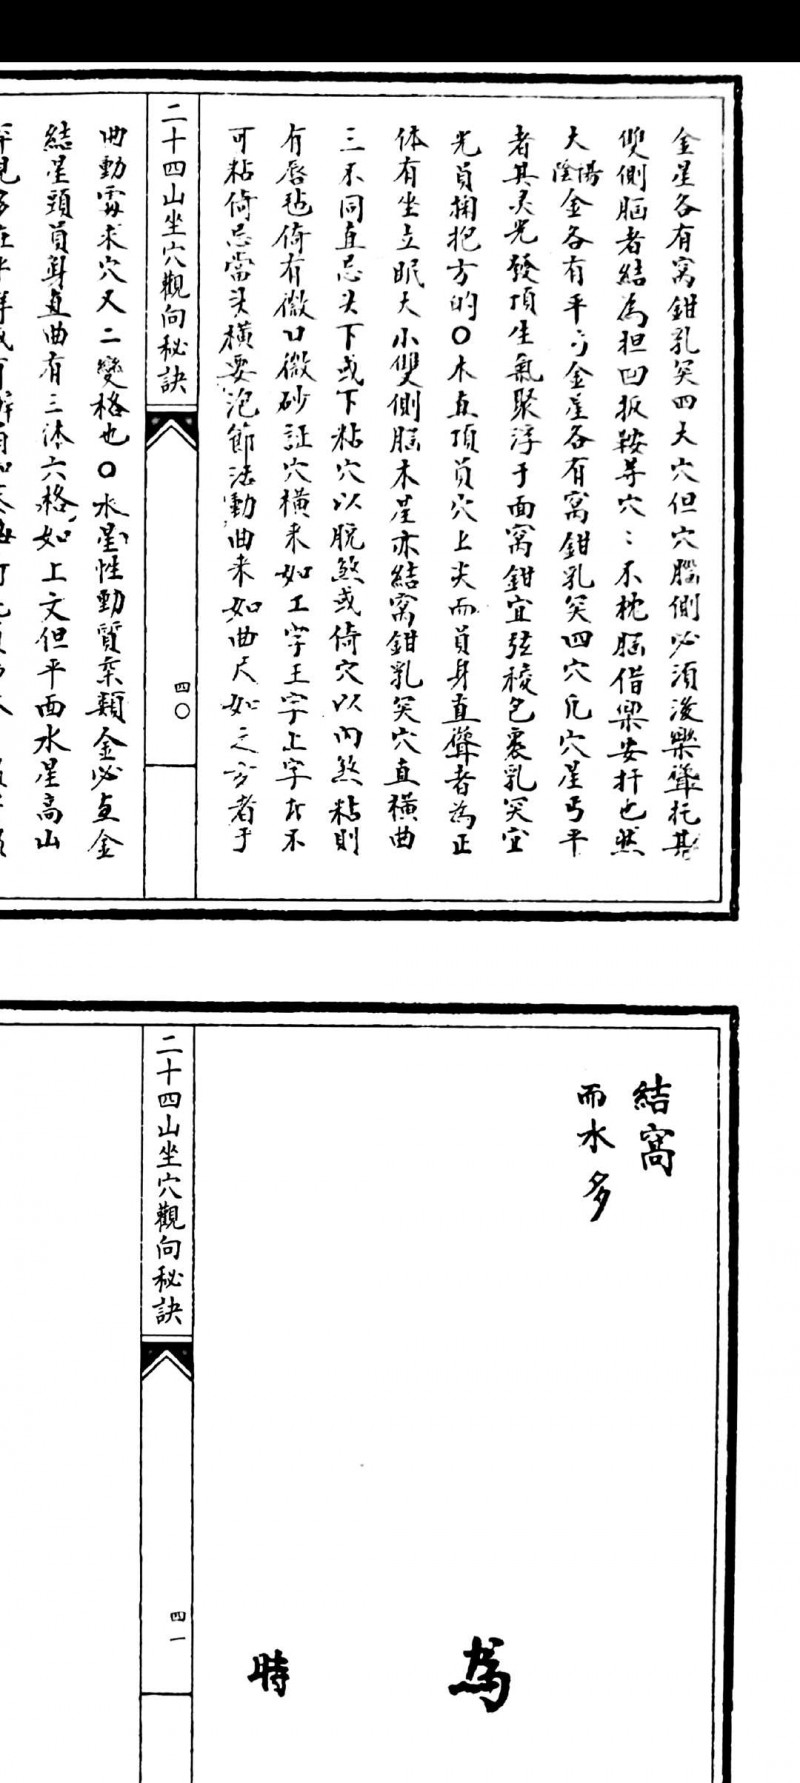 金星各有窩鉗乳突四大穴但穴腦側必須後樂聳托其
雙側腦者結為担凹扳鞍等穴〻不枕腦借樂安扦也然
大陰陽金各有平
金星各有窩鉗乳突四穴凡穴星丐平
者其灵光發頂生氣聚浮于面窩鉗宜弦稜包裹乳突宜
光員掬抱方的○木直頂員穴上尖而員身直聳者為正
体有坐立眠大小雙側腦木星亦結窩鉗乳突穴直橫曲
三不同直忌头下或下粘穴以脫煞或倚穴以內煞粘則
有唇毡倚有微口微砂証穴橫来如工字王字上字不
可粘倚忌當头橫要泡節活動曲来如曲尺如之字者于
二十四山坐穴觀向秘訣
四〇
曲動處求穴又二變格也○水星性動質柔類金必直金
結星頭員身直曲有三体六格如上文但平面水星高山
結窩
而水多
為
時
二十四山坐穴觀向秘訣
四一